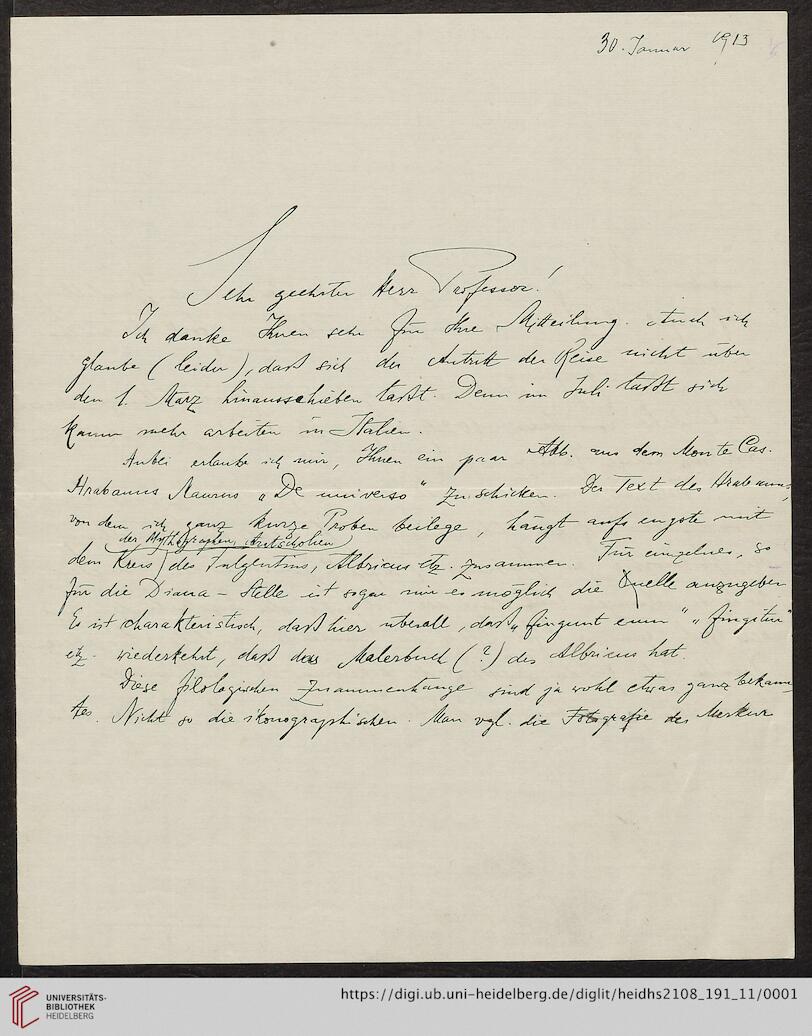 30. Januar 1913
Sehr geehrter Herr Professor!
Ich danke Ihnen sehr für Ihre Mitteilung. Auch ich
glaube (leider), daß sich der Antritt der Reise nicht über
den 1. März hinausschieben läßt. Denn im Juli läßt sich
kaum mehr arbeiten in Italien.
Anbei erlaube ich mir, Ihnen ein paar Abb. aus dem Monte Cas.
Hrabanus Maurus „De universo" zu schicken. Der Text des Hrabanus,
von dem ich ganz kurze Proben beilege, hängt aufs engste mit
der Mythografen,
dem Kreis des Fulgentius, Albricus etz. zusammen. Für einzelnes, so
für die Diana-Stelle ist sogar mir es möglich die Quelle anzugeben
Es ist charakteristisch, daß hier überall, das „fingunt eum" „fingitur"
etz. wiederkehrt, daß das Malerbuch (?) des Albricus hat.
Diese filologischen Zusammenhänge sind ja wohl etwas ganz bekann-
tes. Nicht so die ikonographischen. Man vgl. die Fotografie des Merkur
UNIVERSITÄTS-
BIBLIOTHEK
HEIDELBERG
https://digi.ub.uni-heidelberg.de/diglit/heidhs2108_191_11/0001